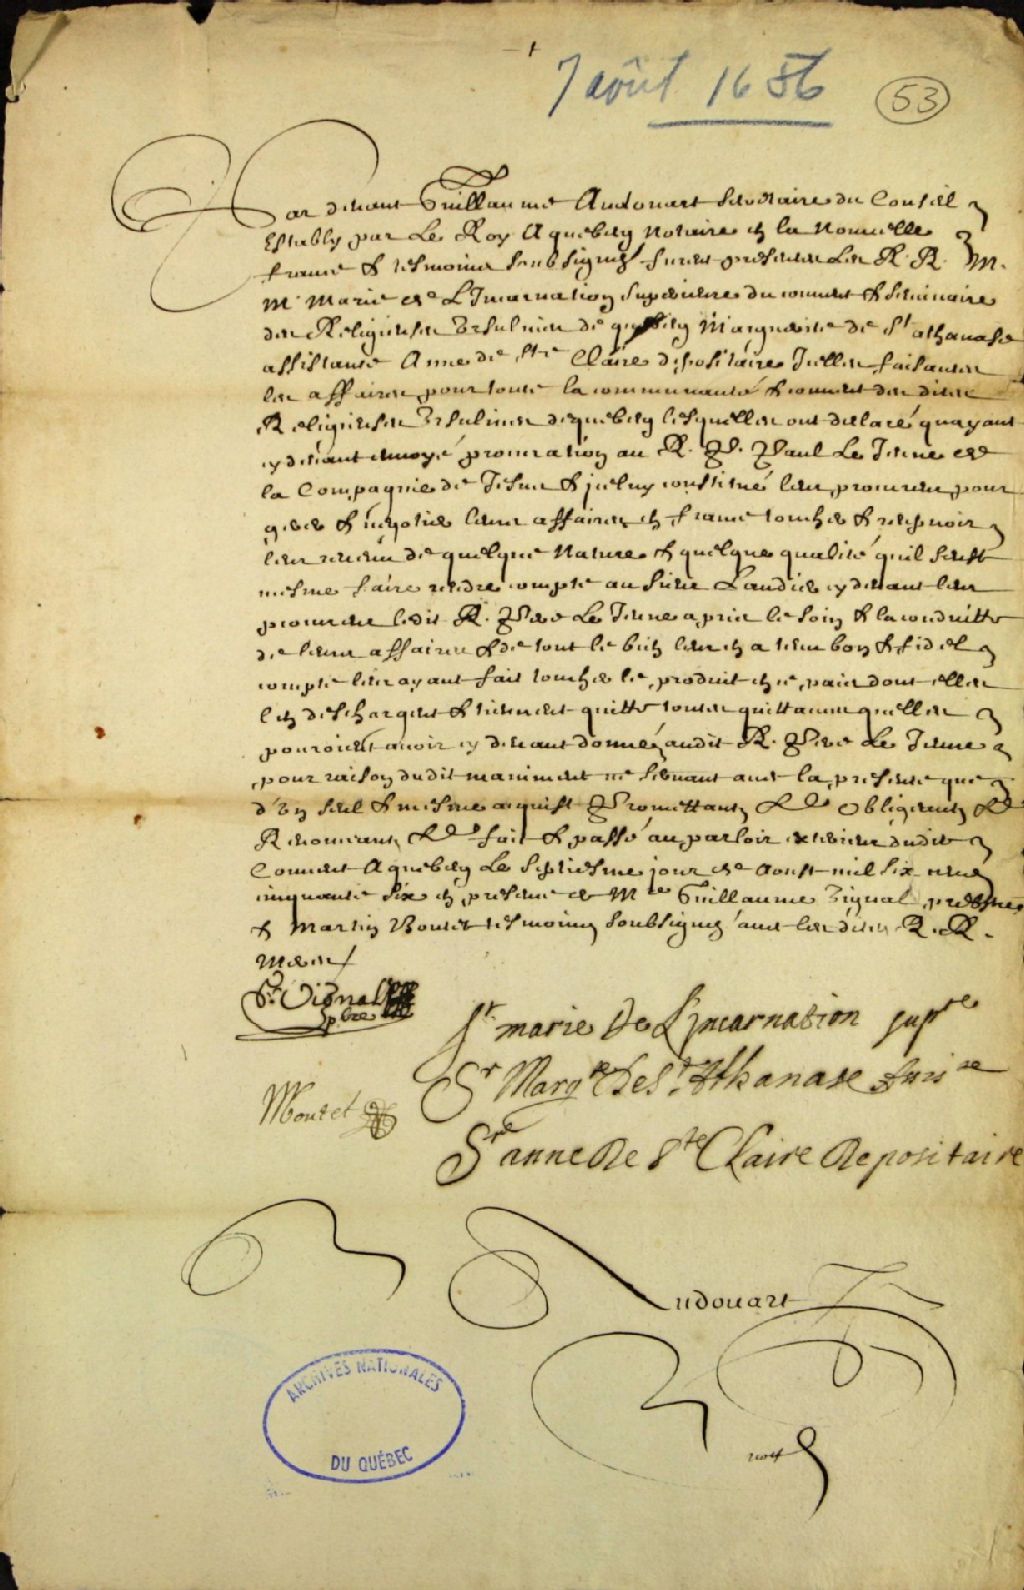 7 août 1656
53
Par devant Guillaume Audouart secretaire du Conseil
Estably par Le Roy A quebecq notaire en la Nouvelle
france & tesmoins soubsignez furent presentes Les R. R. M.
M. Marie de L'Incarnation superieure du couvent & seminaire
des Religieuses Ursulines de quebecq Marguerite de St athanase
assistante Anne de Ste Claire depositaire Icelles faisantes
les affaires pour toute la communauté & couvent des dites
Religieuses Ursulines de quebecq lesquelles ont declaré quayant
cy devant envoyé procuration au R. P. Paul Le Jeune de
la Compagnie de Jesus & jceluy constitué leur procureur pour
gerer & negotier leurs affaires en france toucher & recepvoir
leur revenu de quelque nature & quelque qualité quil soust
mesme faire rendre compte au sieur Laudier cy devant leur
procureur ledit R. Pere Le Jeune a pris le soin & la conduitte
de leurs affaires & de tout le bien leur en a tenu bon & fidel
compte leur ayant fait toucher le produit en paix dont elles
len deschargent & tiennent quitte toutes quittances quelles
pouroient avoir cy devant donné audit R. Pere Le Jeune
pour raison dudit maniment ne servant avec la presente que
d'un seul & mesme acquist Promettants &c Obligeants &c
Renonceants &c fait & passé au parloir exterieur dudit
Couvent A quebecq Le septiesme jour de Aoust mil six cens
cinquante six en presence de Mre Guillaume Vignal prebstre
& Martin Boutet tesmoins soubsignez avec les dites R. R.
Meres
G. Vignal
pbre
Sr marie De L'jncarnation supre
Sr Margte de St Athanase
Boutet
Sr anne De Ste Claire Depositaire
Audouart
nore
ARCHIVES NATIONALES
DU QUÉBEC